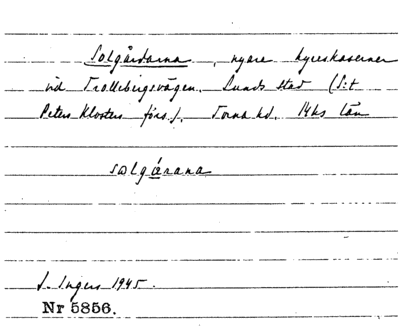 Solgårdarna, nyare hyreskaserner
vid Trollebergsvägen. Lunds stad (S:t
Peters Klosters förs.). Torna hd. Mhs län
solgårana
I. Ingers 1945.
Nr 5856.